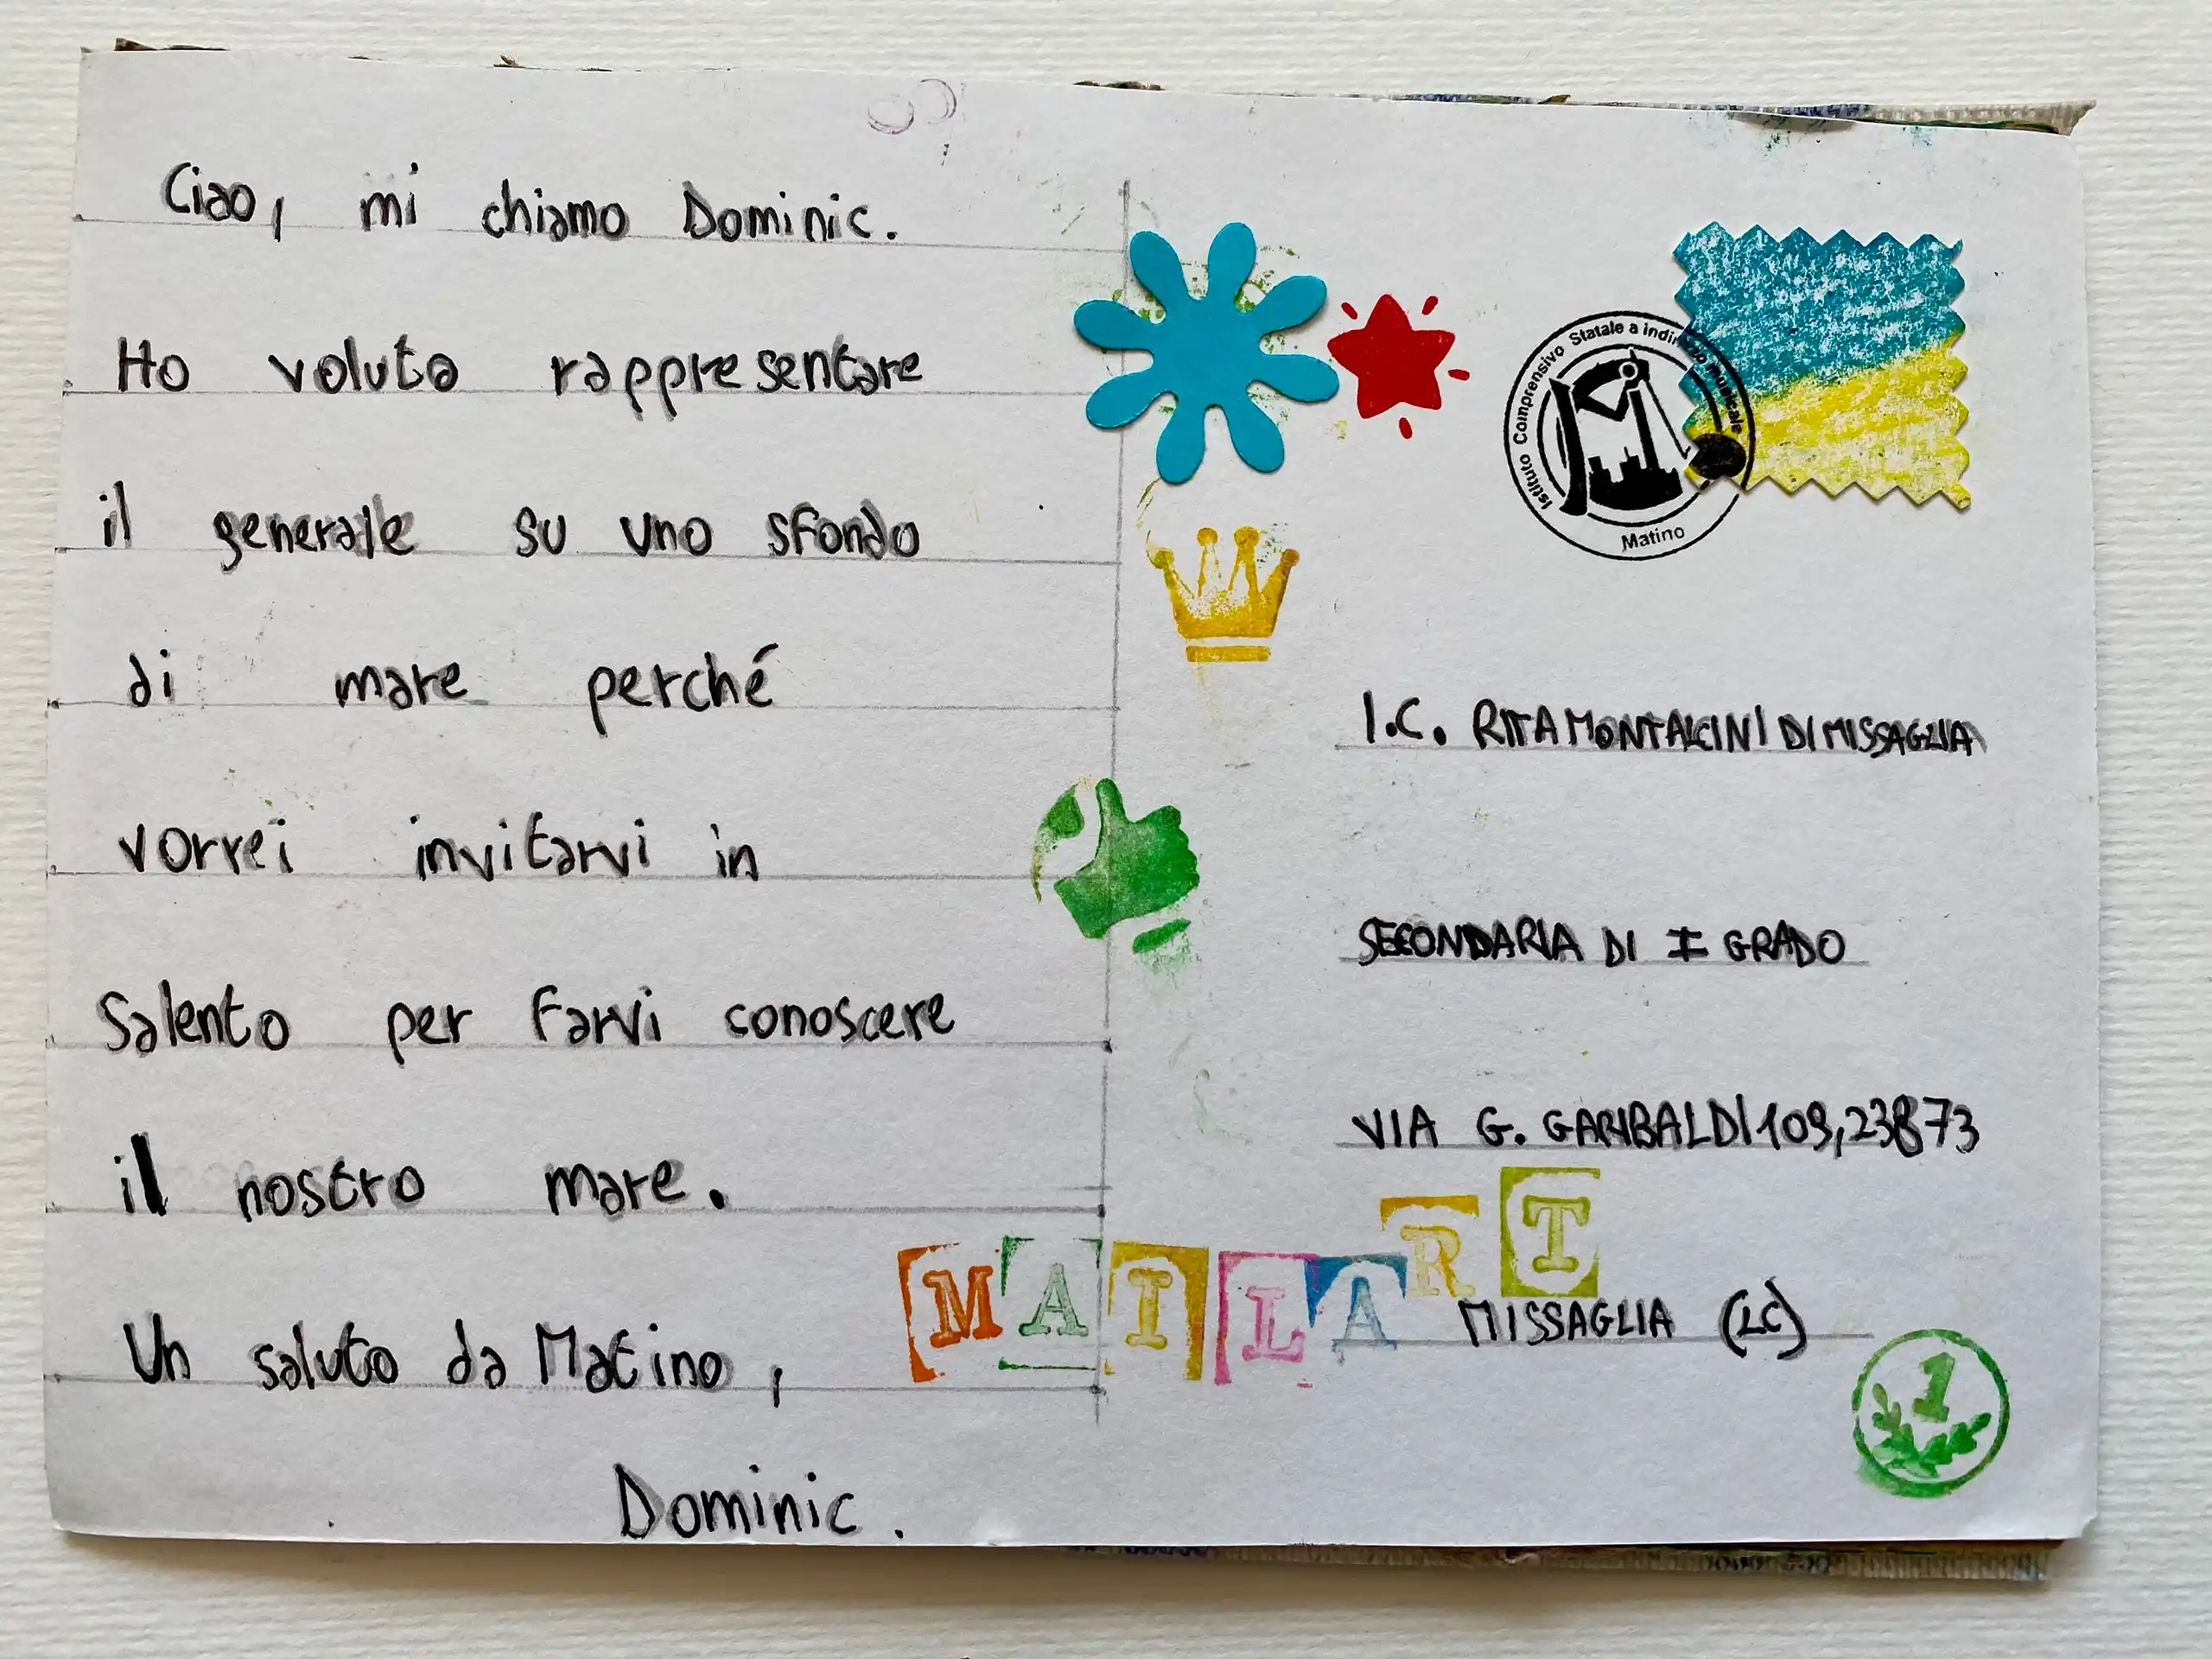 Ciao, mi chiamo Dominic.
Ho voluto rappresentare
il generale su uno sfondo
di mare perché
vorrei invitarvi in
Salento per farvi conoscere
il nostro mare.
Un saluto da Matino,
Dominic.
Istituto Comprensivo Statale a indirizzo musicale
Matino
I.C. RITA MONTALCINI DI MISSAGLIA
SECONDARIA DI I GRADO
VIA G. GARIBALDI 109, 23873
MAIL ART
MISSAGLIA (LC)
1